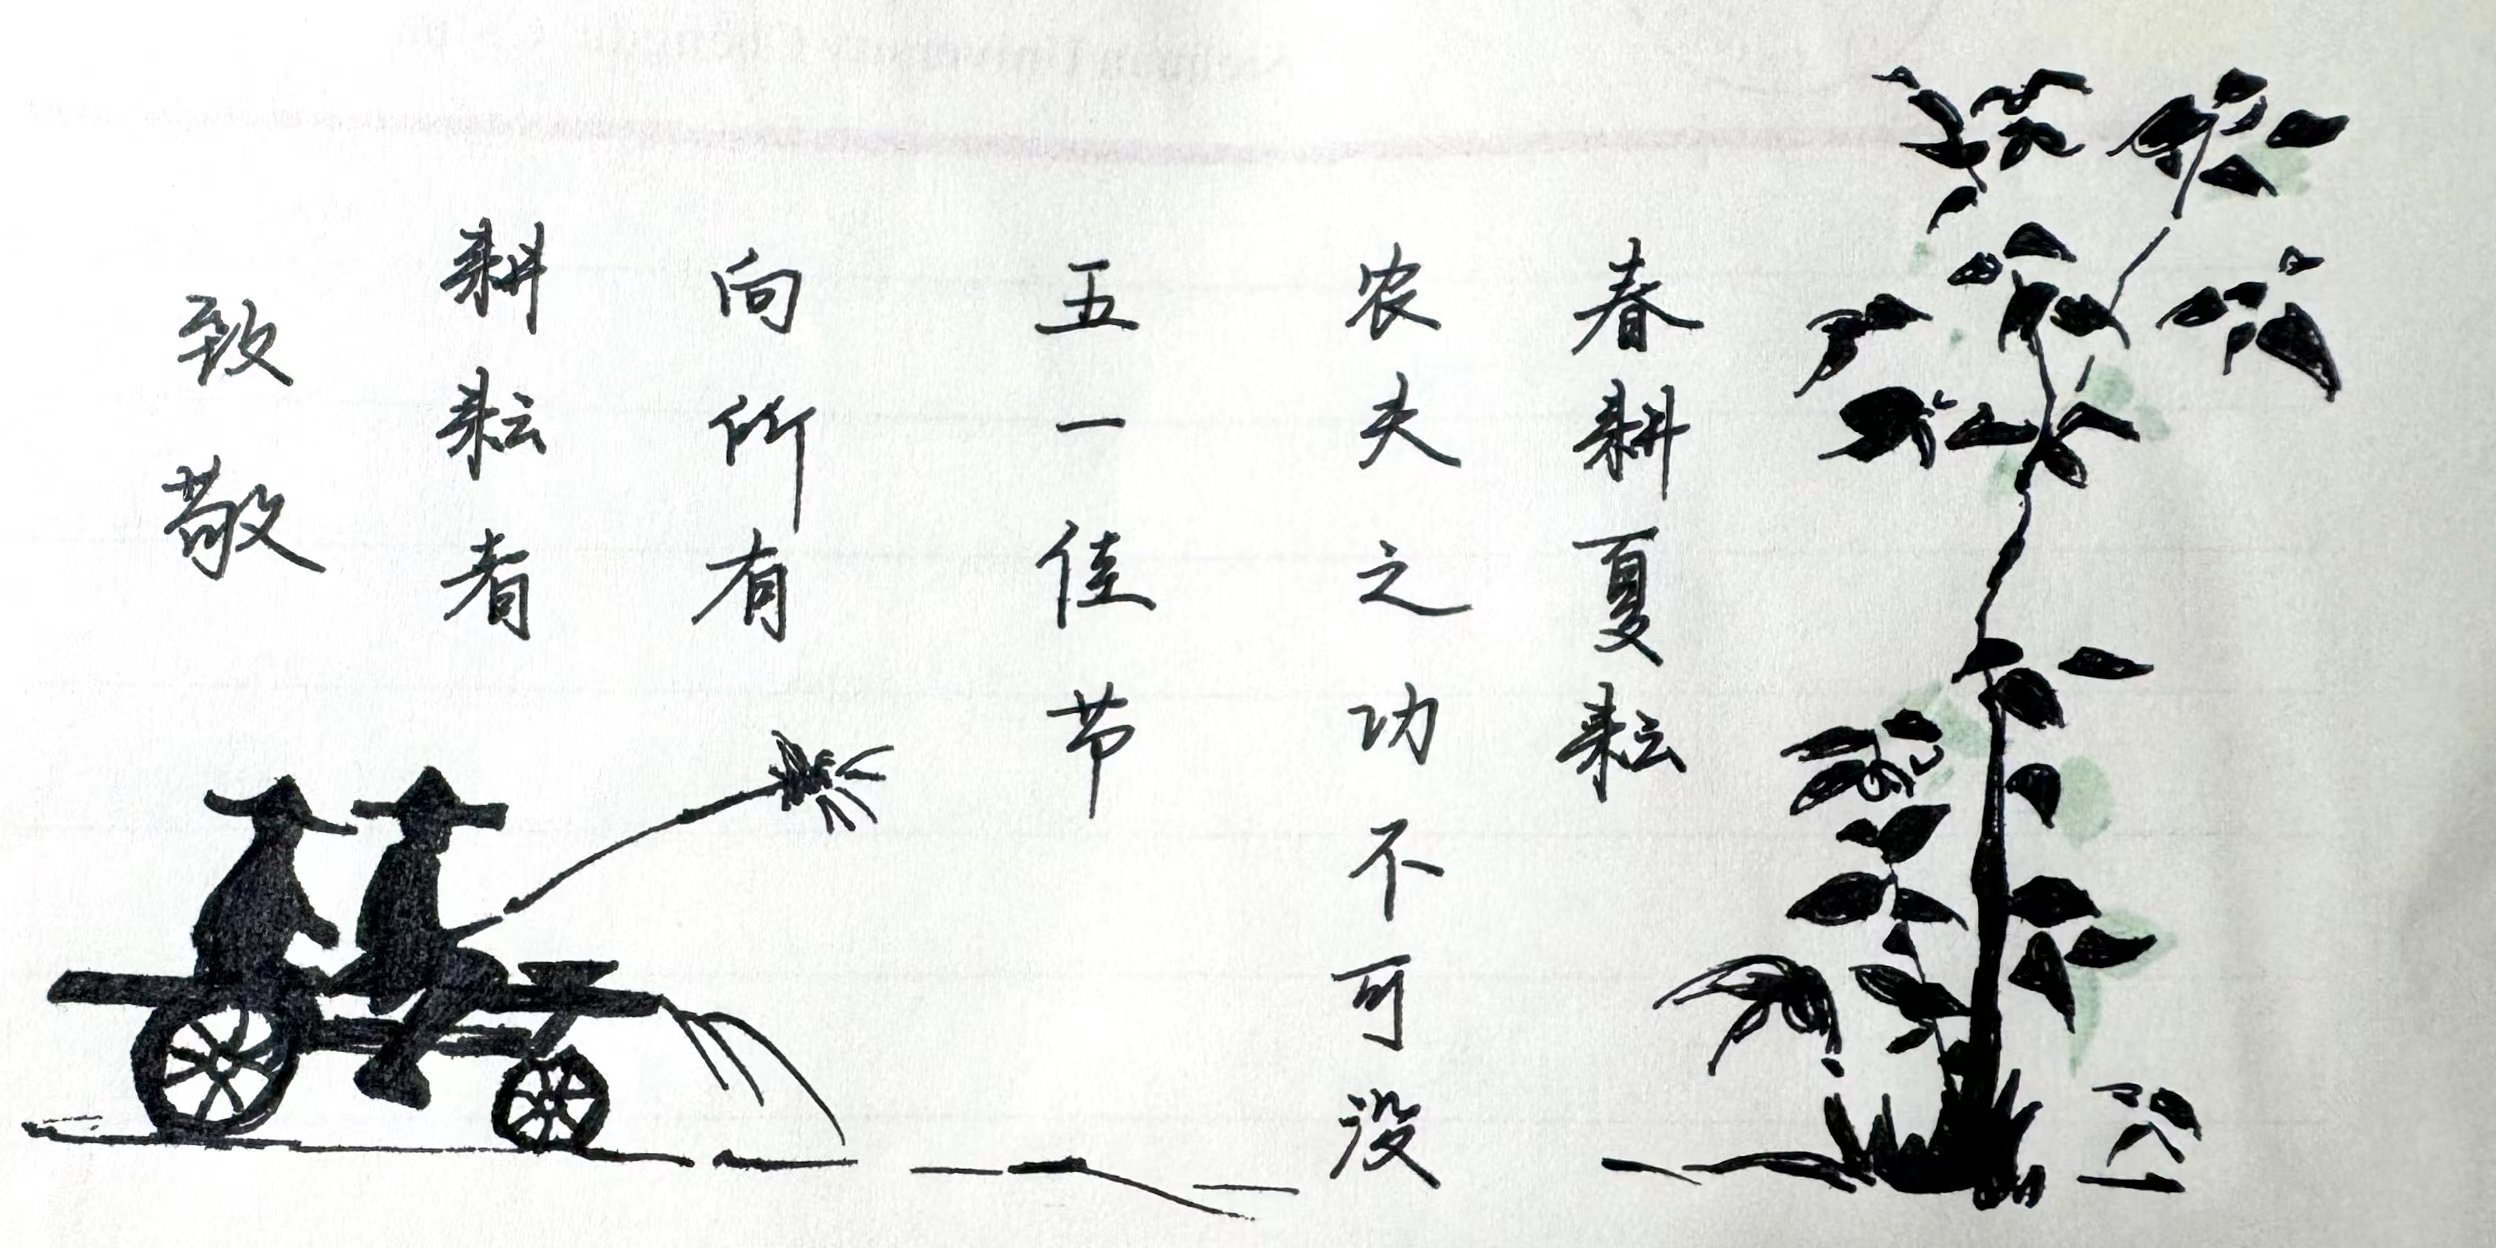 春耕夏耘
农夫之功不可没
五一佳节
向所有
耕耘者
致敬